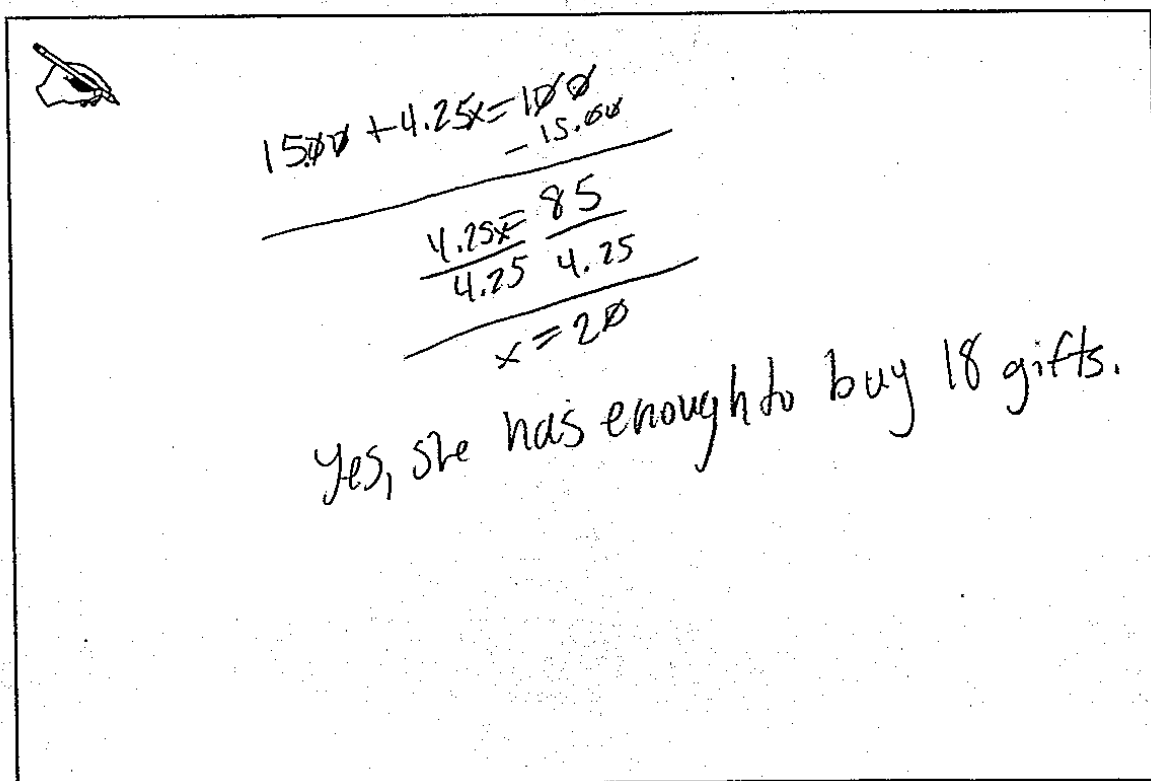 15.00 + 4.25x = 100
- 15.00
4.25x = 85
4.25 4.25
x = 20
Yes, she has enough to buy 18 gifts.